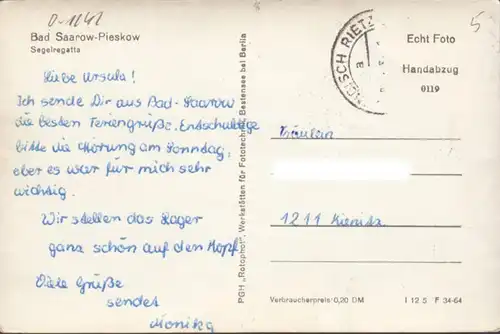 0-1242
5
Bad Saarow-Pieskow
Segelregatta
Echt Foto
Handabzug
0119
Liebe Ursula!
Ich sende Dir aus Bad-Saarow
die besten Feriengrüße. Entschuldige
bitte die Störung am Sonntag,
aber es war für mich sehr
wichtig.
Wir stellen das Lager
ganz schön auf den Kopf.
Viele Grüße
sendet
Monika
PGH „Rotophot“, Werkstätten für Fototechnik, Bestensee bei Berlin
Fräulein
1211 Kienitz
Verbraucherpreis: 0,20 DM
I 12 5 F 34-64